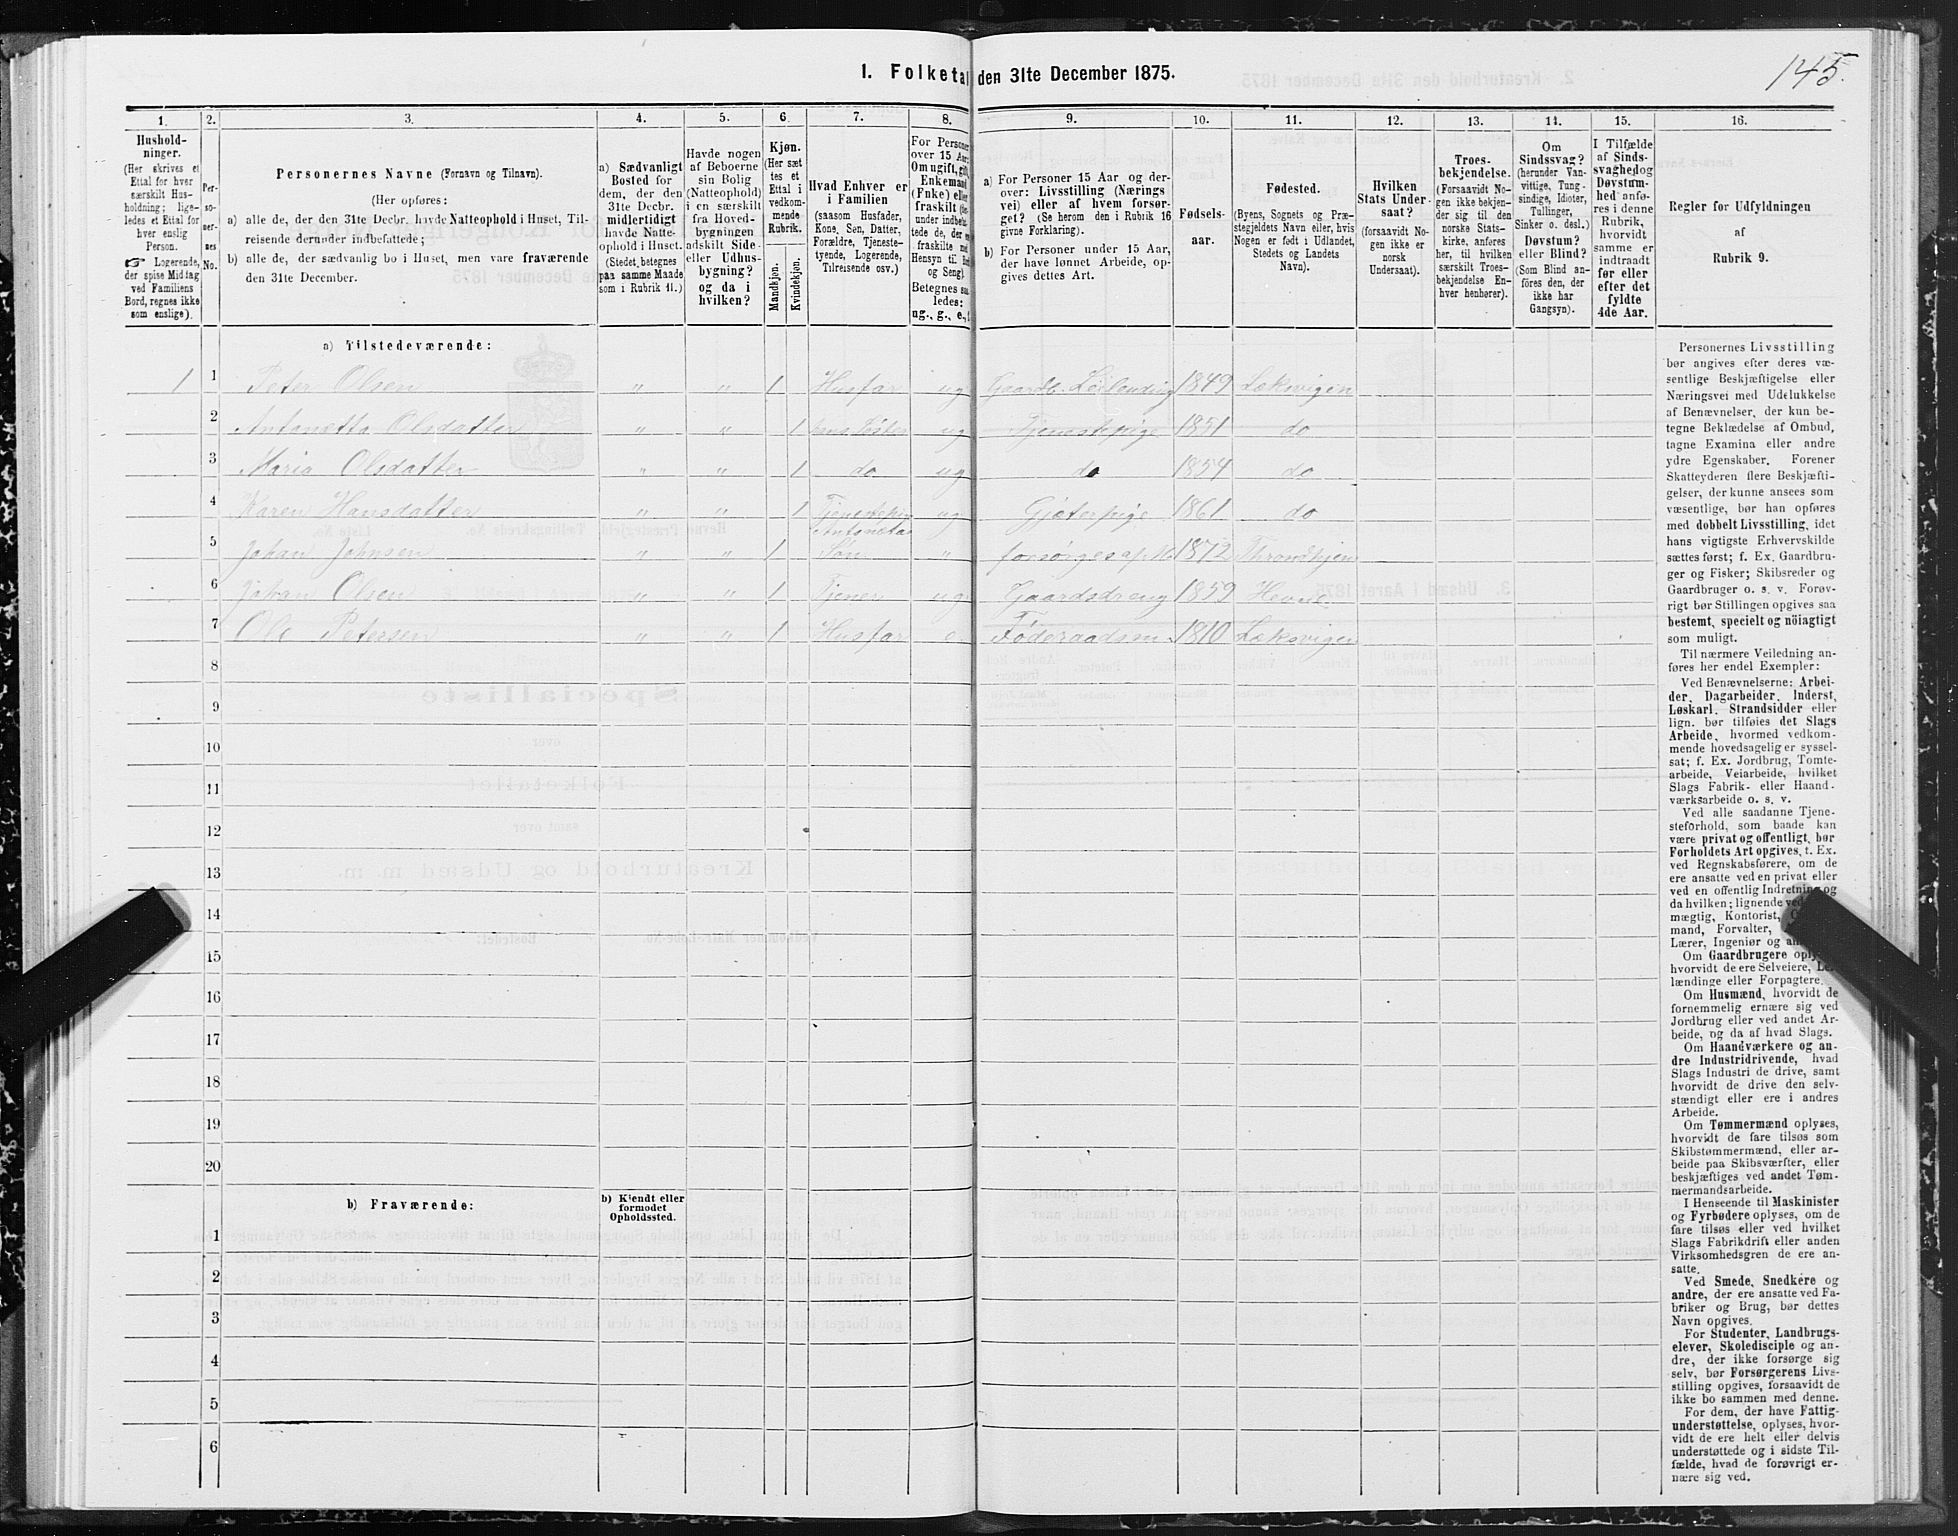 1. Folketal den 31te December 1875.
145.
1.
2.
3.
4.
5.
6.
7.
8.
9.
10.
11.
12.
13.
14.
15.
16.
Hushold-
ninger.
(Her skrives et
Ettal for hver
særskilt Hus-
holdning; lige-
ledes et Ettal for
hver enslig
Person.
☞ Logerende,
der spise Middag
ved Familiens
Bord, regnes ikke
som enslige).
Per-
so-
ner-
nes
No.
Personernes Navne (Fornavn og Tilnavn).
(Her opføres:
a) alle de, der den 31te Decbr. havde Natteophold i Huset, Til-
reisende derunder indbefattede;
b) alle de, der sædvanlig bo i Huset, men vare fraværende
den 31te December.
a) Sædvanligt
Bosted for
dem, der den
31te Decbr.
midlertidigt
havde Natte-
ophold i Huset.
(Stedet betegnes
paa samme Maade
som i Rubrik 11.)
Havde nogen
af Beboerne
sin Bolig
(Natteophold)
i en særskilt
fra Hoved-
bygningen
adskilt Side-
eller Udhus-
bygning?
og da i
hvilken?
Kjøn.
(Her sæt-
tes et
Ettal i
vedkom-
mende
Rubrik.
Mandkjøn.
Kvindekjøn.
Hvad Enhver er
i Familien
(saasom Husfader,
Kone, Søn, Datter,
Forældre, Tjeneste-
tyende, Logerende,
Tilreisende osv.)
For Personer
over 15 Aar:
Om ugift, gift,
Enkemand
(Enke) eller
fraskilt
Betegnes saa-
ledes:
ug., g., e., f.
a) For Personer 15 Aar og der-
over: Livsstilling (Nærings
vei) eller af hvem forsør-
get? (Se herom den i Rubrik 16
givne Forklaring).
b) For Personer under 15 Aar,
der have lønnet Arbeide, op-
gives dettes Art.
Fødsels-
aar.
Fødested.
(Byens, Sognets og Præ-
stegjeldets Navn eller, hvis
Nogen er født i Udlandet,
Stedets og Landets
Navn).
Hvilken
Stats Under-
saat?
(forsaavidt No-
gen ikke er
norsk
Undersaat).
Troes-
bekjendelse.
(Forsaavidt No-
gen ikke bekjen-
der sig til den
norske Stats-
kirke, anføres
her, til hvilken
særskilt Troes-
bekjendelse En-
hver henhører).
Om
Sindssvag?
(herunder Van-
vittige, Tung-
sindige, Idioter,
Tullinger,
Sinker o. desl.)
Døvstum?
eller Blind?
(Som Blind an-
føres den, der
ikke har
Gangsyn).
I Tilfælde
af Sinds-
svaghed og
Døvstum-
hed anfø-
res i denne
Rubrik,
hvorvidt
samme er
indtraadt
før eller
efter det
fyldte
4de Aar.
Regler for Udfyldningen
af
Rubrik 9.
a) Tilstedeværende:
1 1 Peter Olsen " " 1 Husfar ug Gaardb. Leilending 1849 Leksvigen
2 Antonetta Olsdatter " " 1 hans Søster ug Tjenestepige 1851 do
3 Maria Olsdatter " " 1 do ug do 1854 do
4 Karen Hansdatter " " 1 Tjenestepige ug Gjæterpige 1861 do
5 Johan Johnsen " " 1 Antonettas Søn " forsørges af M. 1872 Throndhjem
6 Johan Olsen " " 1 Tjener ug Gaardsdreng 1859 Hevne
7 Ole Petersen " " 1 Husfar e Føderaadsm. 1810 Leksvigen
8
9
10
11
12
13
14
15
16
17
18
19
20
b) Fraværende:
b) Kjendt eller
formodet
Opholdssted.
1
2
3
4
5
6
Personernes Livsstilling
bør angives efter deres væ-
sentlige Beskjæftigelse eller
Næringsvei med Udelukkelse
af Benævnelser, der kun be-
tegne Beklædelse af Ombud,
tagne Examina eller andre
ydre Egenskaber. Forener
Skatteyderen flere Beskjæfti-
gelser, der kunne ansees som
væsentlige, bør han opføres
med dobbelt Livsstilling, idet
hans vigtigste Erhvervskilde
sættes først; f. Ex. Gaardbru-
ger og Fisker; Skibsreder og
Gaardbruger o. s. v. Forøv-
rigt bør Stillingen opgives saa
bestemt, specielt og nöiagtigt
som muligt.
Til nærmere Veiledning an-
føres her endel Exempler:
Ved Benævnelserne: Arbei-
der, Dagarbeider, Inderst,
Løskarl, Strandsidder eller
lign. bør tilføies det Slags
Arbeide, hvormed vedkom-
mende hovedsagelig er syssel-
sat; f. Ex. Jordbrug, Tomte-
arbeide, Veiarbeide, hvilket
Slags Fabrik- eller Haand-
værksarbeide o. s. v.
Ved alle saadanne Tjene-
steforhold, som baade kan
være privat og offentligt, bør
Forholdets Art opgives, t. Ex.
ved Regnskabsførere, om de
ere ansatte ved en privat eller
ved en offentlig Indretning og
da hvilken; lignende ved
mægtig, Kontorist,
mand, Forvalter,
Lærer, Ingeniør og
Om Gaardbrugere
hvorvidt de ere Selveiere, Lei-
lændinge eller Forpagtere.
Om Husmænd, hvorvidt de
fornemmelig ernære sig ved
Jordbrug eller ved andet Ar-
beide, og da af hvad Slags.
Om Haandværkere og an-
dre Industridrivende, hvad
Slags Industri de drive, samt
hvorvidt de drive den selv-
stændigt eller ere i andres
Arbeide.
Om Tømmermænd oplyses,
hvorvidt de fare tilsøs som
Skibstømmermænd, eller ar-
beide paa Skibsværfter, eller
beskjæftiges ved andet Tøm-
mermandsarbeide.
I Henseende til Maskinister
og Fyrbødere oplyses, om de
fare tilsøs eller ved hvilket
Slags Fabrikdrift eller anden
Virksomhedsgren de ere an-
satte.
Ved Smede, Snedkere og
andre, der ere ansatte ved Fa-
briker og Brug, bør dettes
Navn opgives.
For Studenter, Landbrugs-
elever, Skoledisciple og an-
dre, der ikke forsørge sig
selv, bør Forsørgerens Livs-
stilling opgives, forsaavidt de
ikke bo sammen med denne.
For dem, der have Fattig-
understøttelse, oplyses, hvor-
vidt de ere helt eller delvis
understøttede og i sidste Til-
fælde, hvad de forøvrigt er-
nære sig ved.